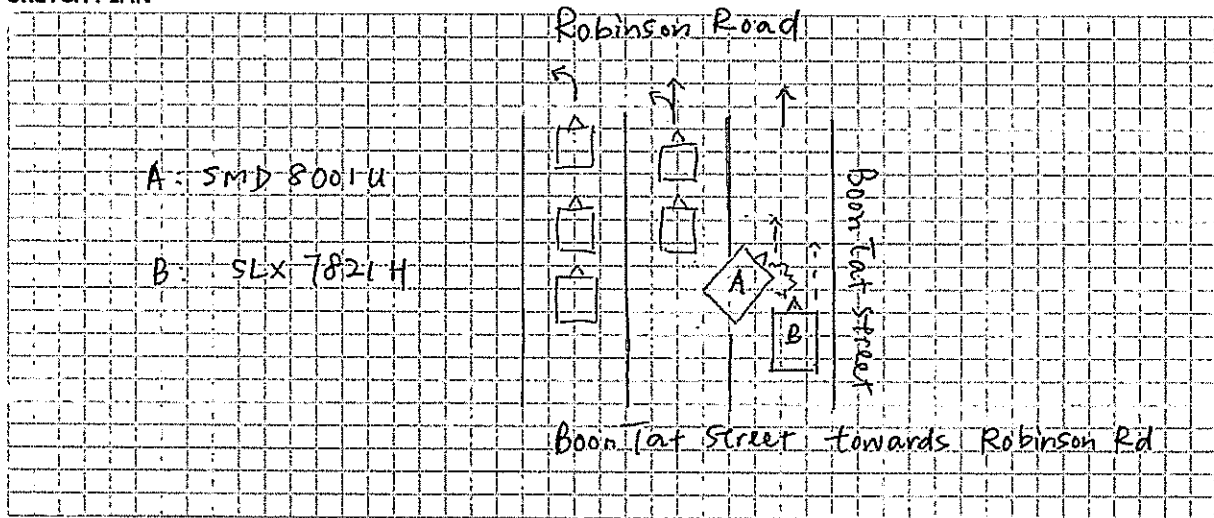 SKETCH PLAN
Robinson Road
A: SMD 8001U
B: SLX 7821H
A
B
Boon Tat Street
Boon Tat Street towards Robinson Rd